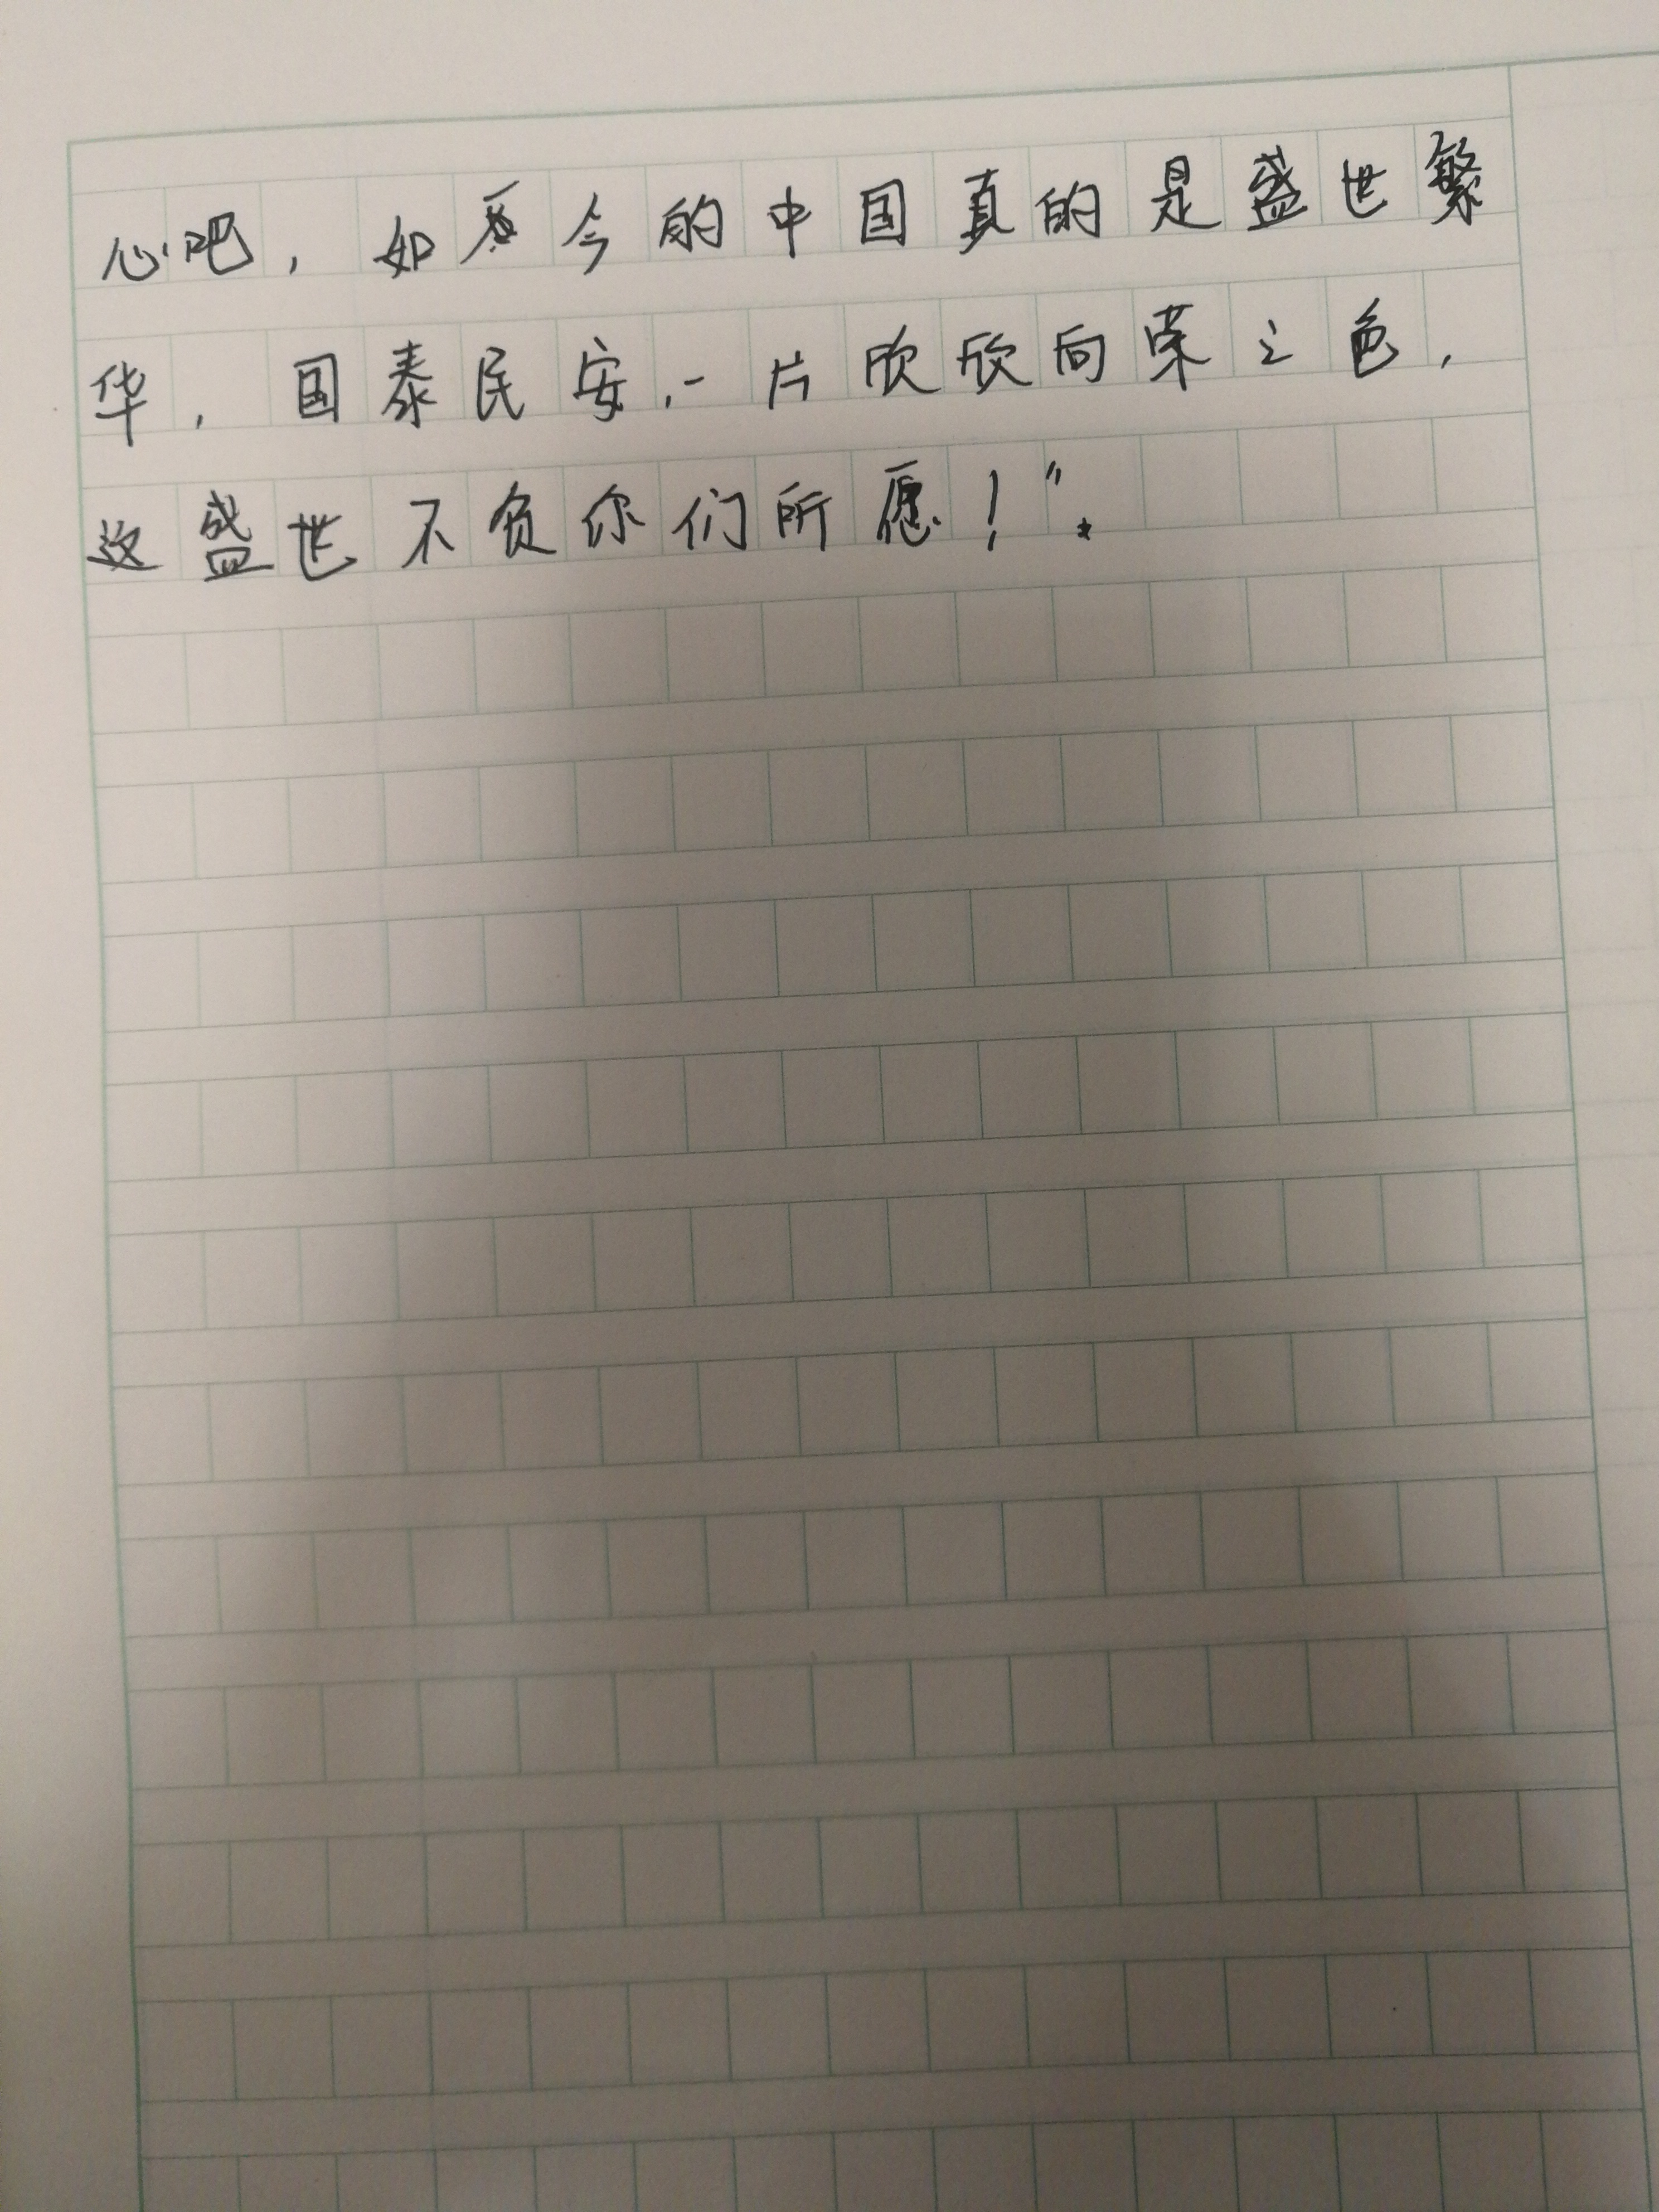 心吧，如今的中国真的是盛世繁
华，国泰民安，一片欣欣向荣之色，
这盛世不负你们所愿！”